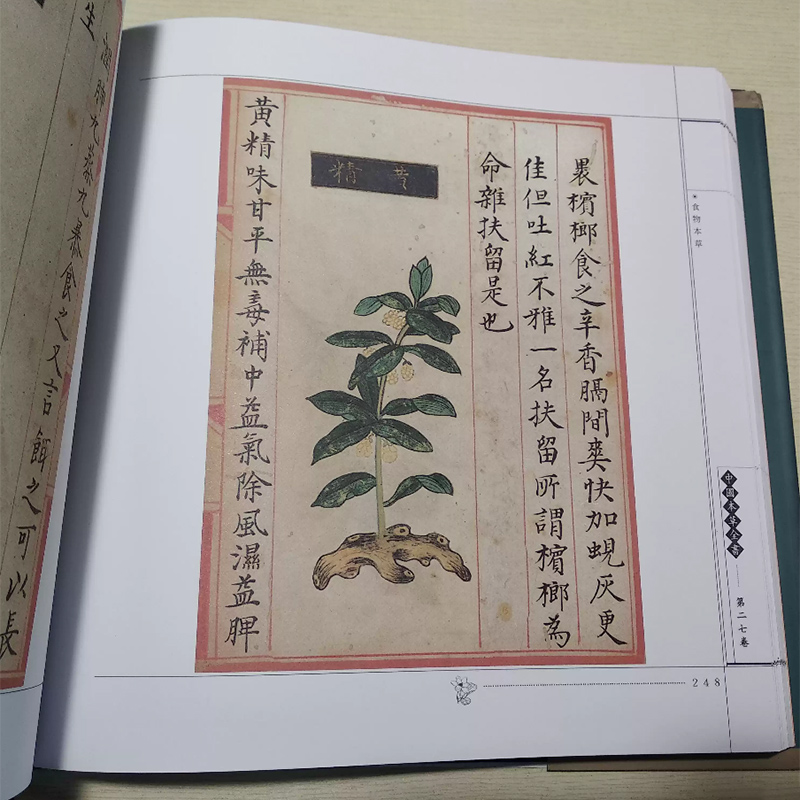 裹檳榔食之辛香膈間爽快加蜆灰更
佳但吐紅不雅一名扶留所謂檳榔為
命雜扶留是也
黃精
黃精味甘平無毒補中益氣除風濕益脾
潤肺九蒸九暴食之又言餌之可以長
生
食物本草
中国本草全書
第二七卷
248